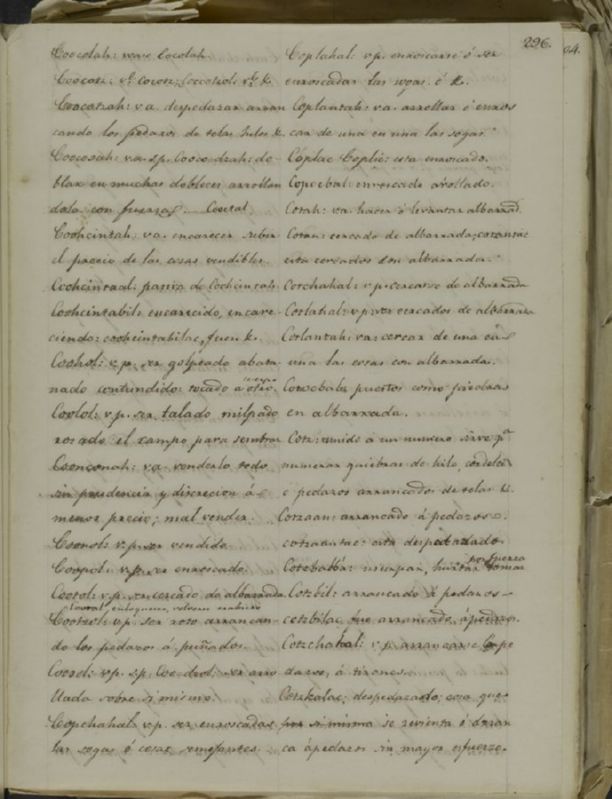 296.
Coocolah: va: Cocolah
Coocotz: vl Cocotz; Coocotzol: vl &.
Coocotzah: va. despedazar arran
cando los pedazos de telas, hilos &.
Coocosah: va. sp. Cooco dzah: do-
blar en muchas dobleces arrollan
dola con fuerza.
Coohcintah: va. encarecer subir
el precio de las cosas vendibles.
Coohcintaal: pasiva de Coohcintah.
Coohcintabil: encarecido, encare-
ciendo: coohcintabilac, fuere &.
Coohol: v.p. ser golpeado abatu-
nado contundido: tocado a otro.
Coolol: v.p. ser talado milpado
rozado el campo para sembrar
Cooncoonah: va. venderlo todo
sin prudencia y discrecion á
menor precio; mal vender.
Coonol: v.p. ser vendido.
Coopol: v.p. ser enroscado.
Cootol: v.p. ser cercado de albarrada.
Cootzol: v.p. ser roto arrancan-
do los pedazos á puñados.
Coozol: v.p. sp. Coo dzol: ser arro
llada sobre si mismo.
Copchahal: v.p. ser enroscadas
las sogas ó cosas semejantes.
Coplahal: v.p. enroscarse ó ser
enroscadas las sogas. &.
Coplantah: va. arrollar ó enros
car de una en una las sogas.
Cóplac Coplic: esta enroscado.
Copcebal: enroscado arollado.
Cotah: va. hacer ó levantar albarrad.
Cotan: cercado de albarrada; cotantac
esta cercados con albarrada.
Cotchahal: v.p. cercarse de albarrada
Cotlahal: v.p. ser cercados de albarrada
Cotlantah: va: cercar de una en
una las cosas con albarrada.
puestos como piedras
en albarrada.
Cotz: unido á un numero sirve pa
numerar quiebras de hilo, cordeles
ó pedazos arrancados de telas &.
Cotzaan: arrancado á pedazos.
cotzaantac: esta despedazado.
usurpar, hurtar tomar por fuerza
Cotzbil: arrancado á pedazos
cotzbilac fue arrancado á pedazos.
Cotzchahal: v.p. arrancarse
á tirones.
Cotzkalac: despedazado; cosa que
por si misma se revienta ó arran
ca á pedazos sin mayor esfuerzo.